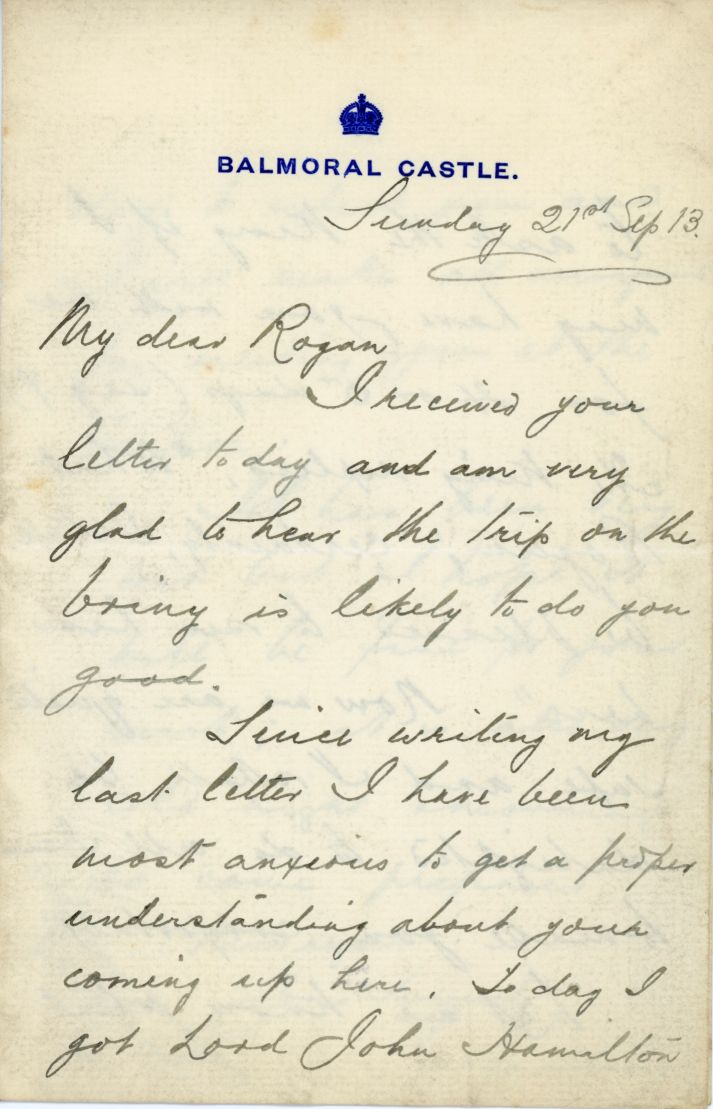 BALMORAL CASTLE.
Sunday 21st Sep 13.
My dear Rogan
I received your
letter today and am very
glad to hear the trip on the
briny is likely to do you
good.
Since writing my
last letter I have been
most anxious to get a proper
understanding about your
coming up here. Today I
got Lord John Hamilton